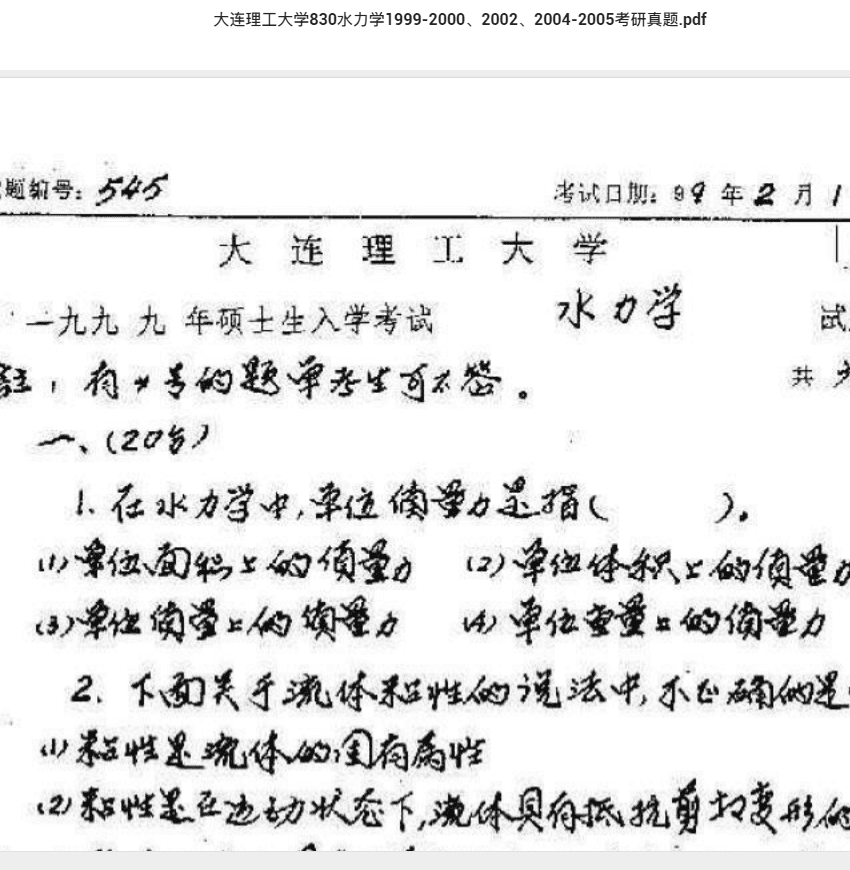 大连理工大学830水力学1999-2000、2002、2004-2005考研真题.pdf
题编号：545 考试日期：99 年 2 月 1
大 连 理 工 大 学
一九九 九 年硕士生入学考试 水力学 试
註：有*号的题单考生可不答。 共
一、(20分)
1. 在水力学中,单位质量力是指( )。
(1)单位面积上的质量力 (2)单位体积上的质量力
(3)单位质量上的质量力 (4)单位重量上的质量力
2. 下面关于流体粘性的说法中,不正确的是
(1)粘性是流体的固有属性
(2)粘性是在运动状态下,流体具有抵抗剪切变形的